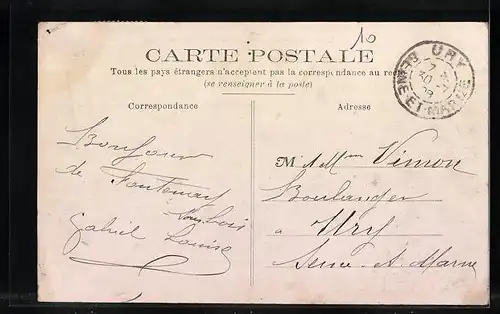 10
CARTE POSTALE
Tous les pays étrangers n'acceptent pas la correspondance au re
(se renseigner à la poste)
URY
SEINE-ET-MARNE
30
Correspondance
Adresse
Bonjour
de Fontenay
sous bois
Gabriel Louise
M et Mme Vimon
Boulanger
à
Ury
Seine-et-Marne